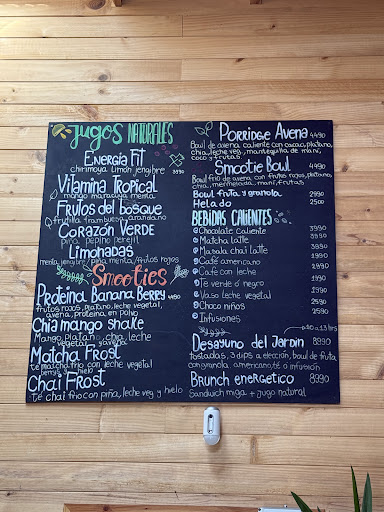 Jugos NATURALES
Energia Fit
chirimoya limón jengibre 3490
Vitamina Tropical
mango maracuya menta
Frutos del bosque
frutilla frambuesa arandano
Corazón Verde
piña pepino perejil
Limonadas
menta jengibre, piña menta, frutos rojos
Smooties
Proteina Banana Berry 4490
frutos rojos, platano, leche vegetal,
avena, proteina en polvo
Chia mango shake
Mango, platano, chia, leche
vegetal y avena
Matcha Frost
te matcha frio con leche vegetal
y hielo
Chai Frost
té chai frio con piña, leche veg y hielo
Porridge Avena 4490
Bowl de avena caliente con cacao, platano,
chia, leche veg, mantequilla de maní,
coco y frutas.
Smootie Bowl 4490
Bowl frio de avena con frutos rojos, platano,
chia, mermelada, maní, frutas
Bowl fruta y granola 2990
Helado 2500
BEBIDAS CALIENTES
Chocolate Caliente 3990
Matcha latte 3990
Masala chai latte 3990
Café americano
Café con leche
Té verde o negro
Vaso leche vegetal 2590
Choco niños 2590
Infusiones
Desayuno del Jardin 8990
tostadas, 3 dips a elección, bowl de fruta
con granola, americano, té o infusión
Brunch energetico 8990
Sandwich miga + jugo natural